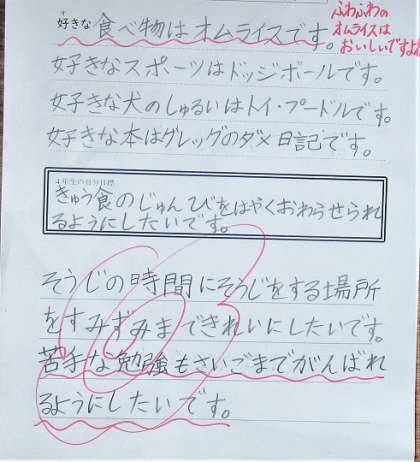 好きな食べ物はオムライスです。
ふわふわの
オムライスは
おいしいですよね
好きなスポーツはドッジボールです。
好きな犬のしゅるいはトイ・プードルです。
好きな本はグレッグのダメ日記です。
4年生の自分目標
きゅう食のじゅんびをはやくおわらせられ
るようにしたいです。
そうじの時間にそうじをする場所
をすみずみまできれいにしたいです。
苦手な勉強もさいごまでがんばれ
るようにしたいです。